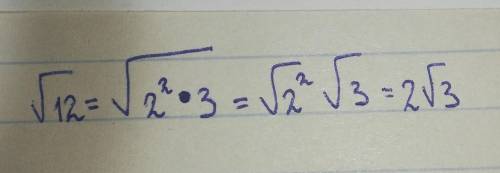 √12 = √2² • 3 = √2² √3 = 2√3